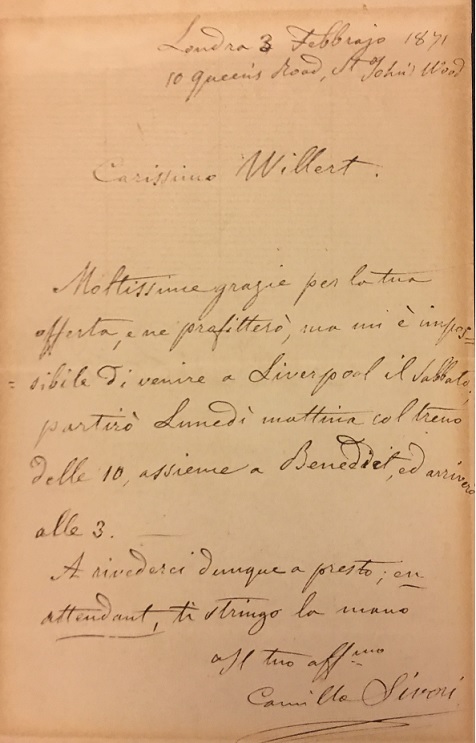 Londra 3 Febbrajo 1871
10 Queen's Road, St John's Wood
Carissimo Willert.
Moltissime grazie per la tua
offerta, e ne profitterò, ma mi è impos=
=sibile di venire a Liverpool il Sabbato;
partirò Lunedì mattina col treno
delle 10, assieme a Benedict, ed arriverò
alle 3.
A rivederci dunque a presto; en
attendant, ti stringo la mano
tuo affmo
Camillo Sivori